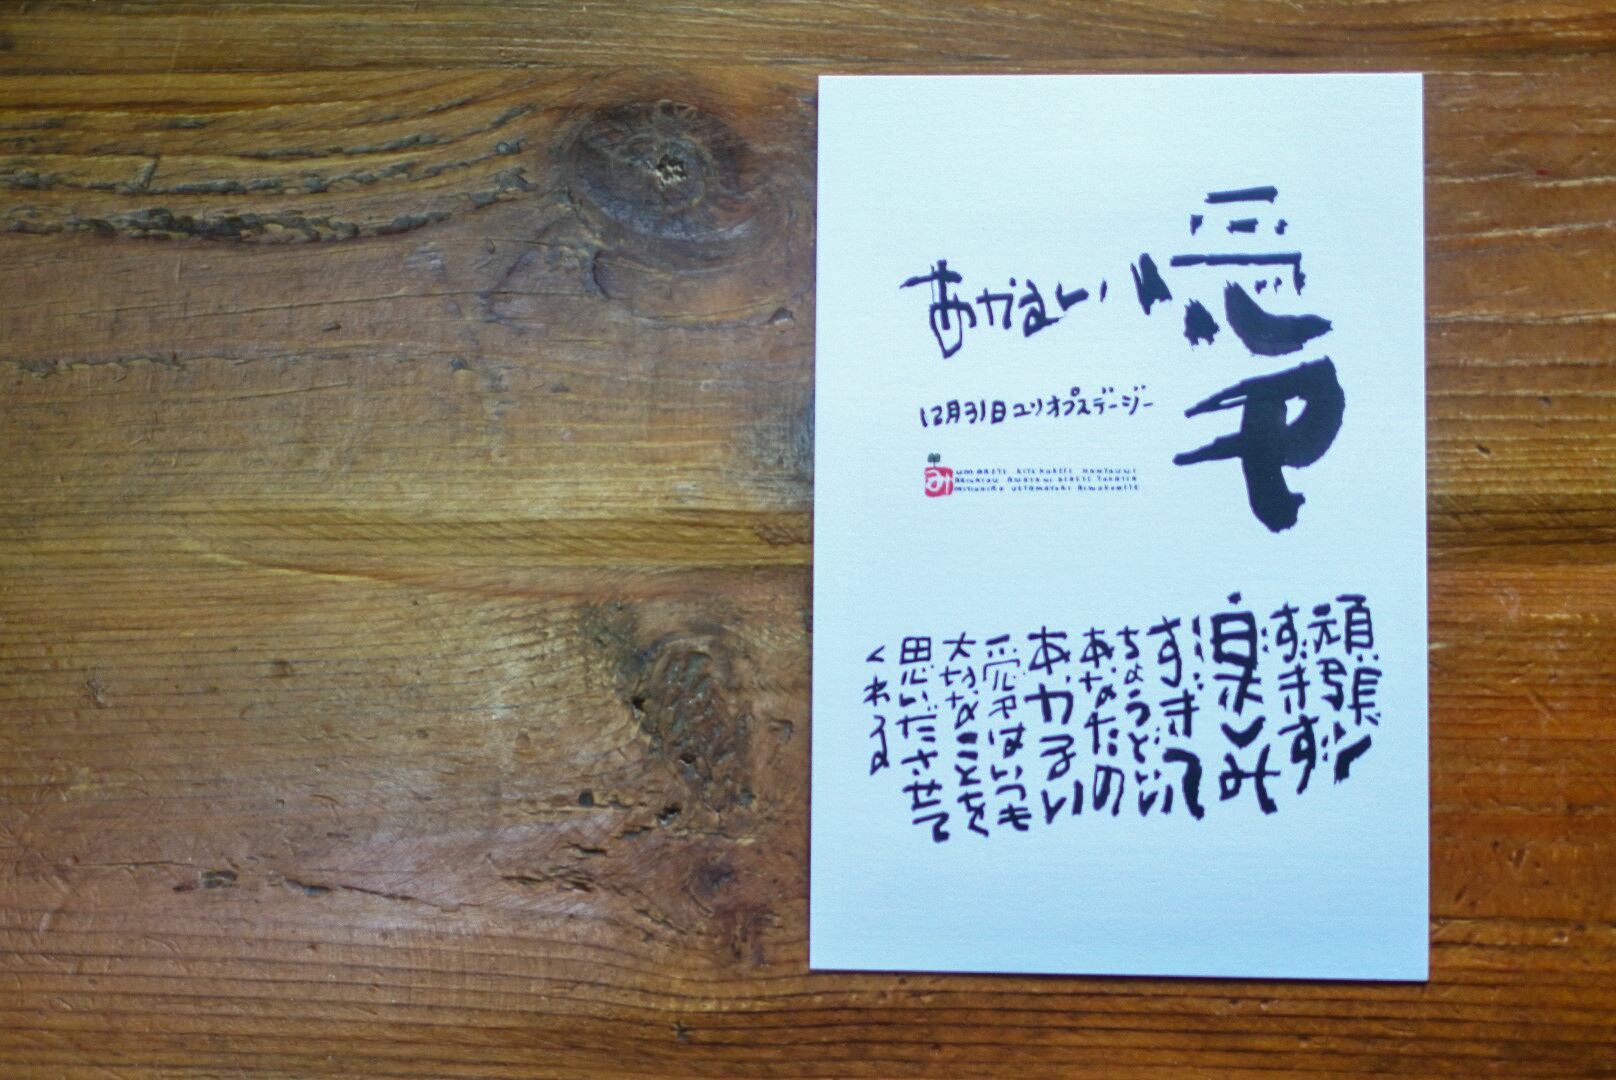 愛
あかるい
12月31日ユリオプスデージー
み
UMARETE KITEKURETE HONTOUNI
ARIGATOU ANATANI DEAETE YOKATTA
AIWOKOMETE
頑張り
すぎず
楽しみ
すぎて
ちょうどいい
あなたの
あかるい
愛はいつも
大切なことを
思いださせて
くれる